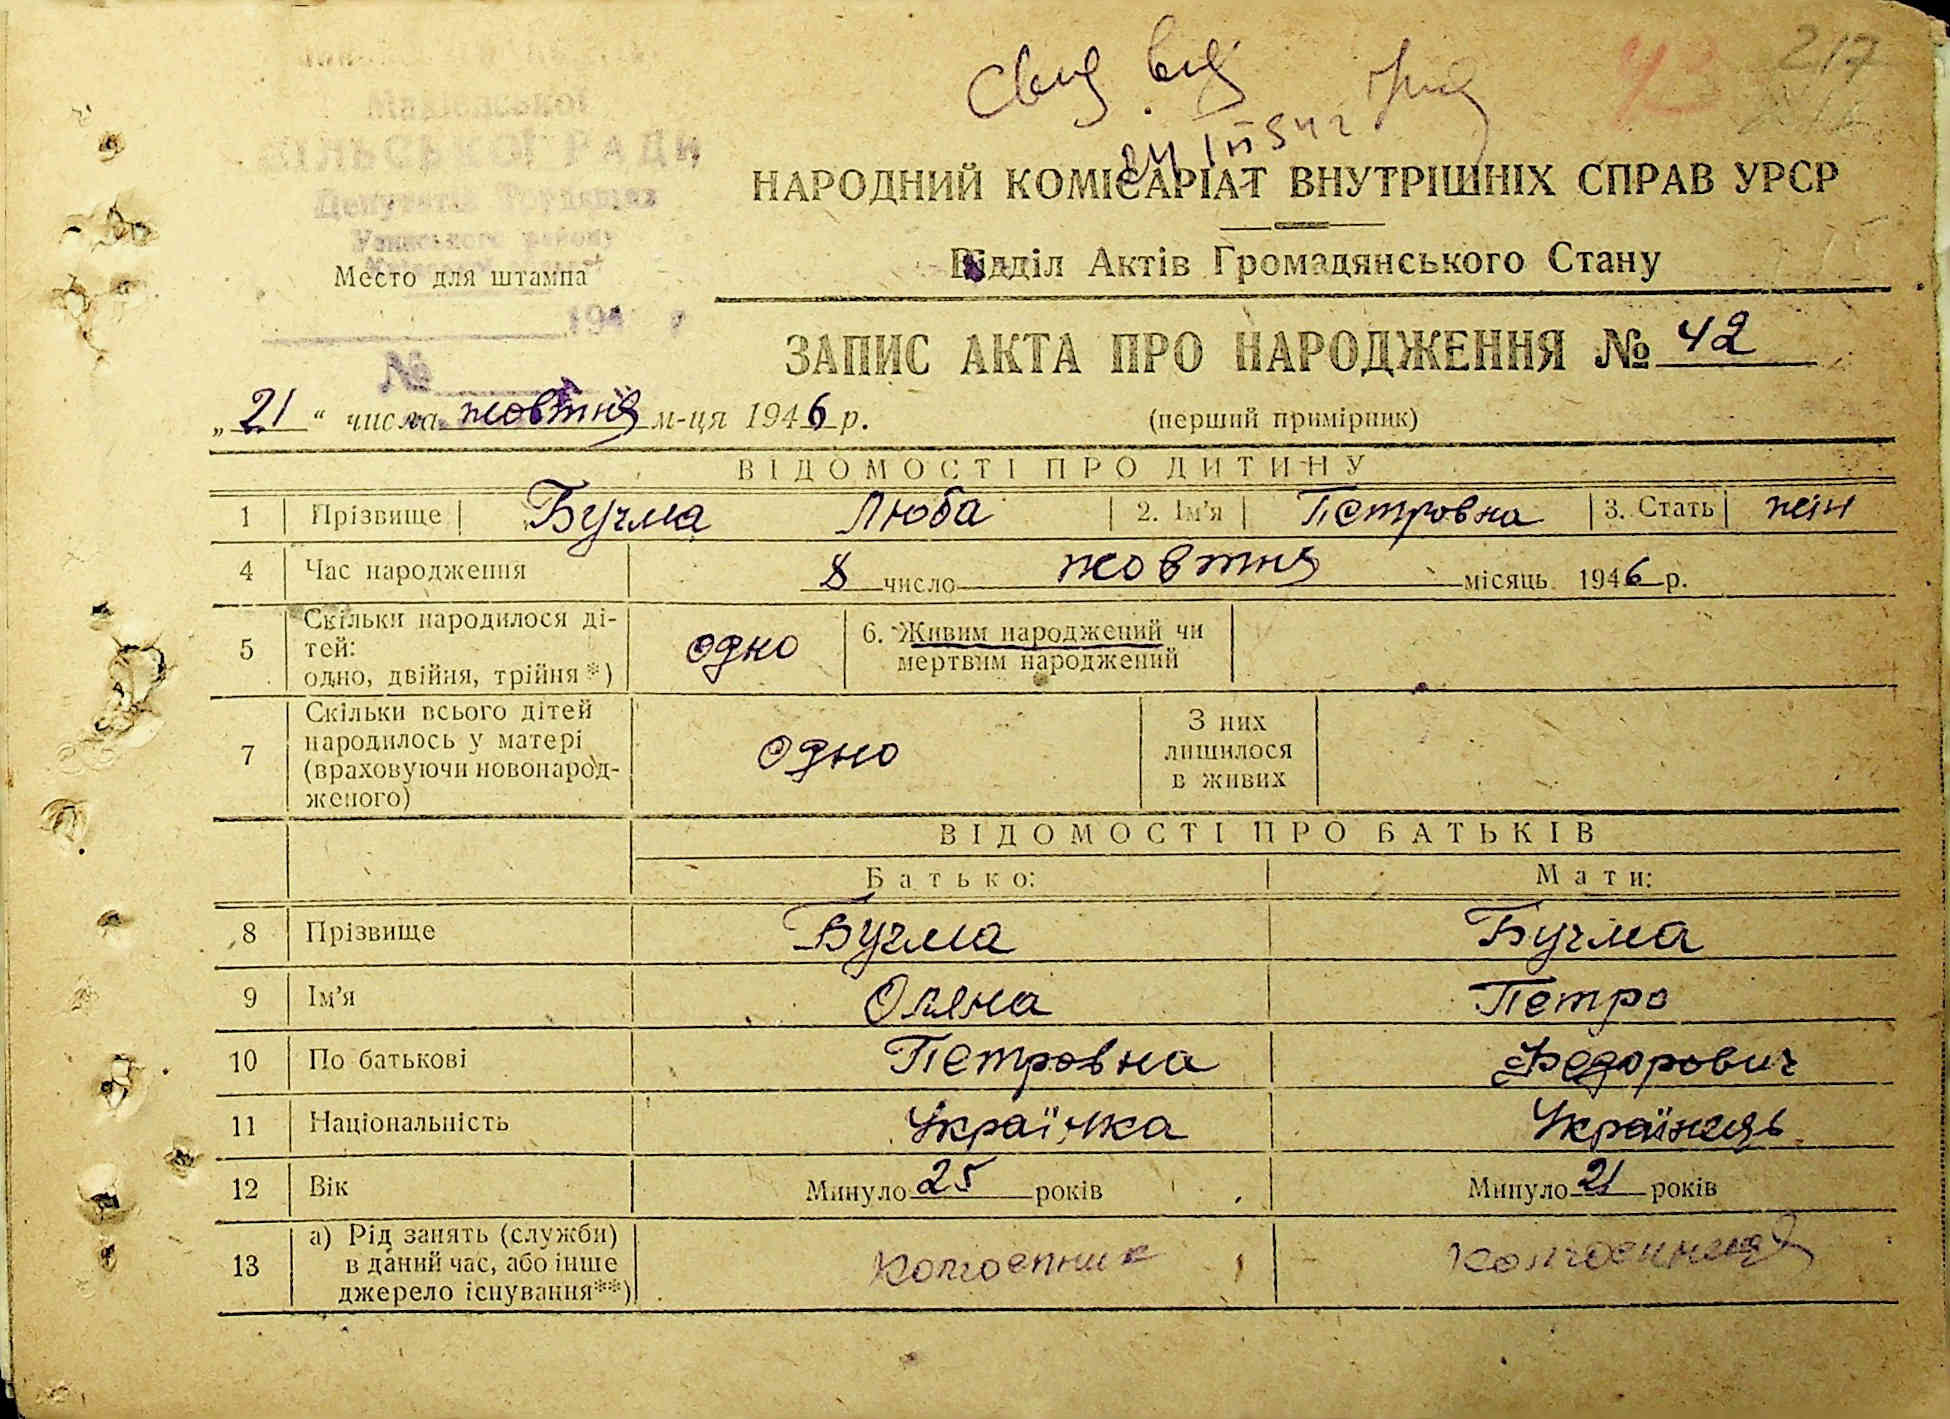 Свид. вид
24 III 54 г
43
217
СІЛЬСЬКОЇ РАДИ
Депутатів Трудящих
району
Место для штампа
194 р
№
НАРОДНИЙ КОМІСАРІАТ ВНУТРІШНІХ СПРАВ УРСР
Відділ Актів Громадянського Стану
ЗАПИС АКТА ПРО НАРОДЖЕННЯ № 42
„21“ числа жовтня м-ця 1946 р. (перший примірник)
ВІДОМОСТІ ПРО ДИТИНУ
1 Прізвище Бучма Люба 2. Ім'я Петровна 3. Стать жін
4 Час народження 8 число жовтня місяць 1946 р.
5 Скільки народилося ді-
тей:
одно, двійня, трійня *) одно
6. Живим народжений чи
мертвим народжений
7 Скільки всього дітей
народилось у матері
(враховуючи новонарод-
женого) одно
З них
лишилося
в живих
ВІДОМОСТІ ПРО БАТЬКІВ
Батько: Мати:
8 Прізвище Бучма Бучма
9 Ім'я Оляна Петро
10 По батькові Петровна Федорович
11 Національність Українка Українець
12 Вік Минуло 25 років Минуло 21 років
13 а) Рід занять (служби)
в даний час, або інше
джерело існування**) колгоспник колгоспниця